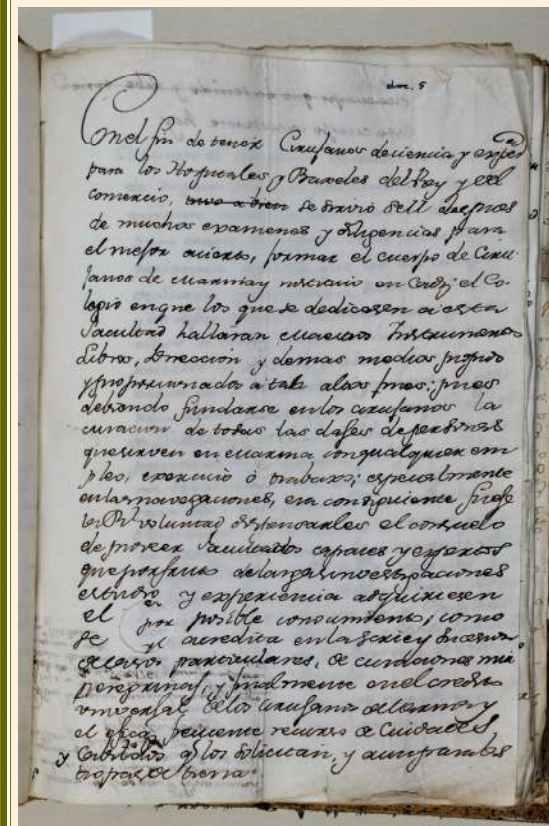 doc. 5
Con el fin de tener Cirujanos de ciencia y exper.ª
para los Hospitales y Baxeles del Rey y del
comercio, tuvo a bien se sirvio S.M. despues
de muchos examenes y diligencias para
el mejor acierto, formar el cuerpo de Ciru
janos de Marina y instituir en Cadiz el Co-
legio en que los que se dedicasen a esta
facultad hallaran Maestros Instrumentos
Libros, Direccion y demas medios propios
y proporcionados a tales fines; pues
debiendo fundarse en los cirujanos la
curacion de todas las clases de personas
que sirven en Marina con qualquier em
pleo, exercicio ó trabajo; especialmente
en las navegaciones, era consiguiente fuese
la R.l voluntad dispensarles el consuelo
de proveer facultados capaces y expertos
que por fruto de largas investigaciones
estudio y experiencia adquiriesen
el por posible conocimiento; como
se acredita en la serie y
de casos particulares, de curaciones mui
peregrinas, y finalmente en el credito
universal de los cirujanos de Marina y
el recurso de Ciudades
y Cabildos q.e los solicitan, y aun para las
tropas de tierra.